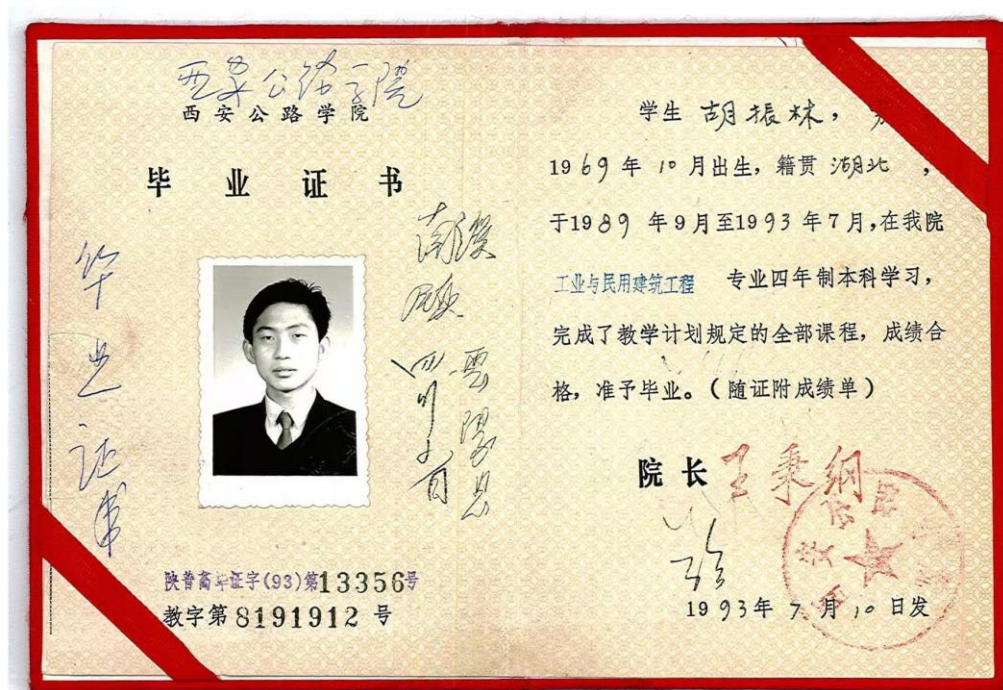 西安公路学院
西安公路学院
毕业证书
毕业证书
四川省
雲陽县
陕普高毕证字(93)第13356号
教字第8191912号
学生 胡振林，
1969年10月出生，籍贯 湖北，
于1989年9月至1993年7月，在我院
工业与民用建筑工程 专业四年制本科学习，
完成了教学计划规定的全部课程，成绩合
格，准予毕业。（随证附成绩单）
院长 王秉纲
1993年7月10日发